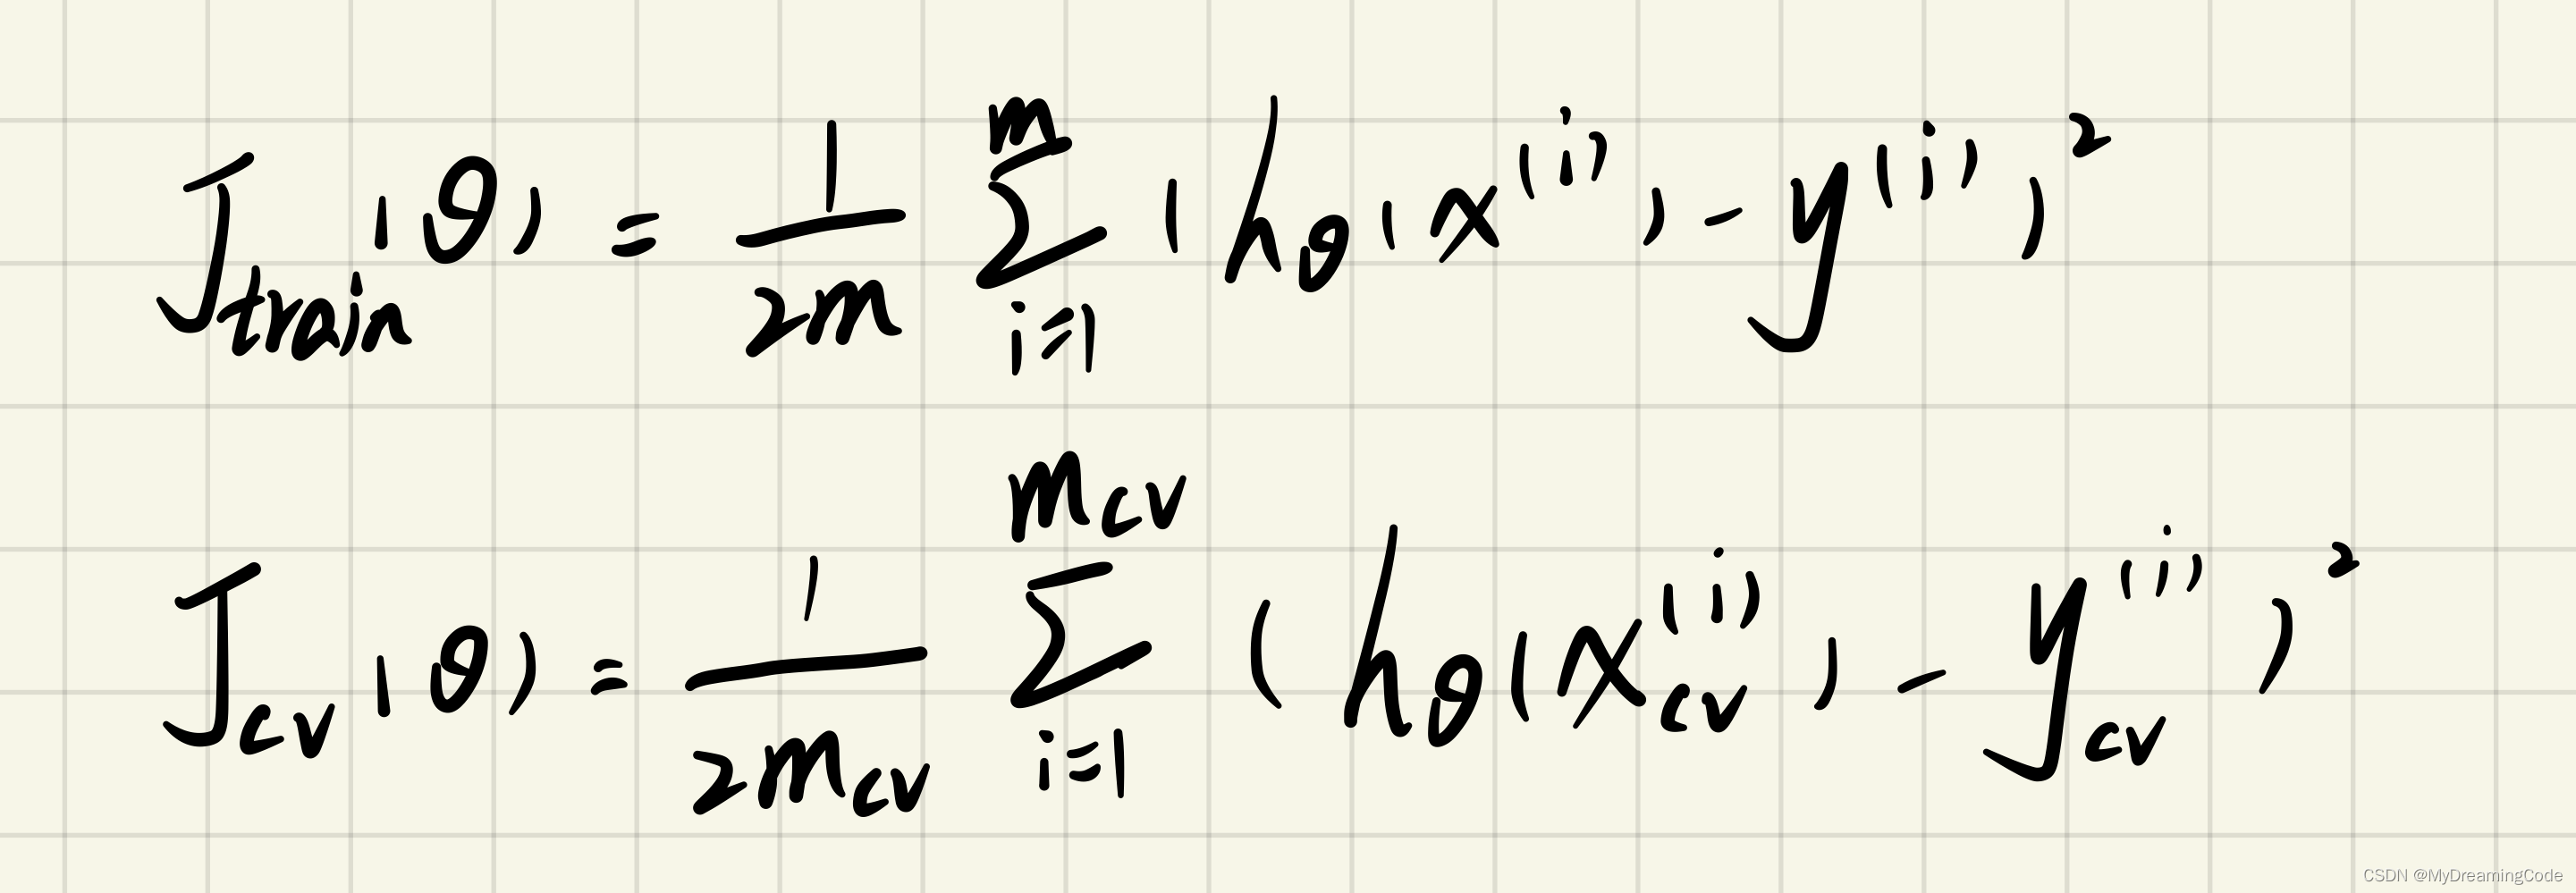 J_train(θ) = 1/2m ∑_{i=1}^{m} (h_θ(x^(i)) - y^(i))^2
J_cv(θ) = 1/2m_cv ∑_{i=1}^{m_cv} (h_θ(x_cv^(i)) - y_cv^(i))^2
CSDN @MyDreamingCode